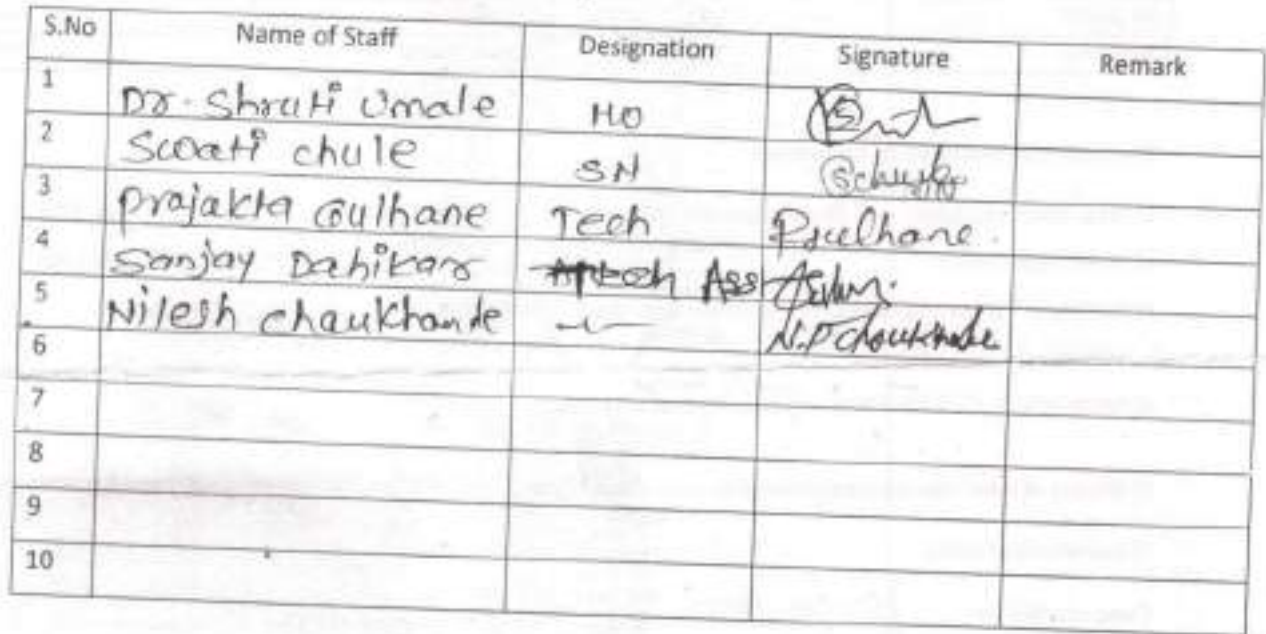 S.No Name of Staff Designation Signature Remark
1 Dr. Shruti Umale MO
2 Swati chule SN Schule
3 Prajakta Gulhane Tech Pgulhane.
4 Sanjay Dahikar Ass
5 Nilesh Chaukhande N.P Choukhade
6
7
8
9
10